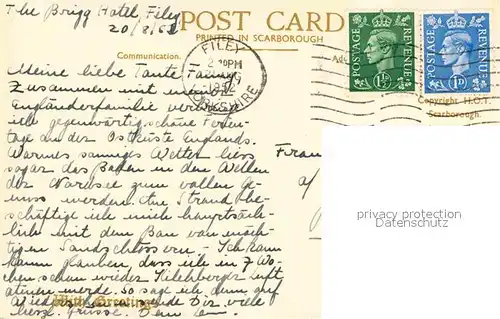 The Brigg Hotel, Filey
20/8/52
POST CARD
PRINTED IN SCARBOROUGH
Communication.
FILEY
YORKSHIRE
POSTAGE REVENUE
1½D
POSTAGE REVENUE
1D
Copyright H.O.T.
Scarborough.
Meine liebe Tante Fanny
Zusammen mit meiner
Engländerfamilie verbringe
ich gegenwärtig schöne Ferien-
tage an der Ostküste Englands.
Warmes sonniges Wetter liess
sogar das Baden in den Wellen
der Nordsee zum vollen Ge-
nuss werden. Am Strand be-
schäftige ich mich hauptsäch-
lich mit dem Bau von mäch-
tigen Sandschlössern - Ich kann
kaum glauben dass ich in 7 Wo-
chen schon wieder Kilchberger Luft
atmen werde. So sage ich denn auf
Wiedersehen sende Dir viele
With Greetings
liebe Grüsse. Dein
Frau
a/
privacy protection
OLDTHING